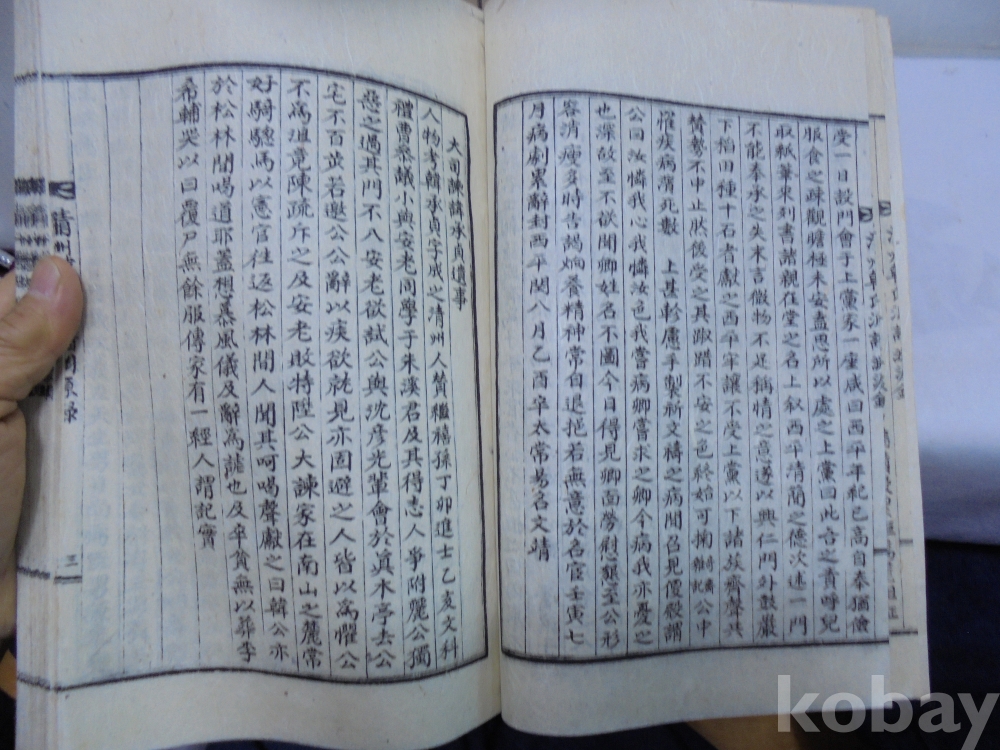 受一日設門會于上黨家一座咸曰西平年紀已高自奉猶儉
服食之疎觀瞻極未安盍思所以處之上黨曰此吾之責呼兒
取紙筆來列書諸親在堂之名上叙西平清簡之德次述一門
不能奉承之失末言微物不足稱情之意遂以興仁門外鼓巖
下稻田種十石者獻之西平牢讓不受上黨以下諸族齊聲共
贊勢不中止然後受之其踧踖不安之色終始可掬 公中
罹疾病謂死數 上甚軫慮手製新文禱之病間召見便殿謂
公曰汝憐我心我憐汝色我嘗病卿嘗求之卿今病我亦憂之
也深故至不欲聞卿姓名不圖今日得見卿面勞慰懇至公形
容消瘦多時告謁焖養精神常自退挹若無意於名宦壬寅七
月病劇累辭封西平閱八月乙酉卒太常易名文靖
大司諫韓承貞遺事
人物考韓承貞字成之清州人贊繼禧孫丁卯進士乙亥文科
禮曹叅議小與安老同學于朱溪君及其得志人爭附麗公獨
惡之過其門不入安老欲試公與沈彦光輩會於眞木亭去公
宅不百武若邀公公辭以疾欲就見亦固避之人皆以爲懼公
不爲沮竟陳疏斥之及安老敗特陞公大諫家在南山之麓常
好騎驄馬以憲官往返松林間人聞其呵喝聲獻之曰韓公亦
於松林間喝道耶蓋想慕風儀及辭爲謔也及卒貧無以葬李
希輔哭以曰覆尸無餘服傳家有一經人謂記實
三
kobay